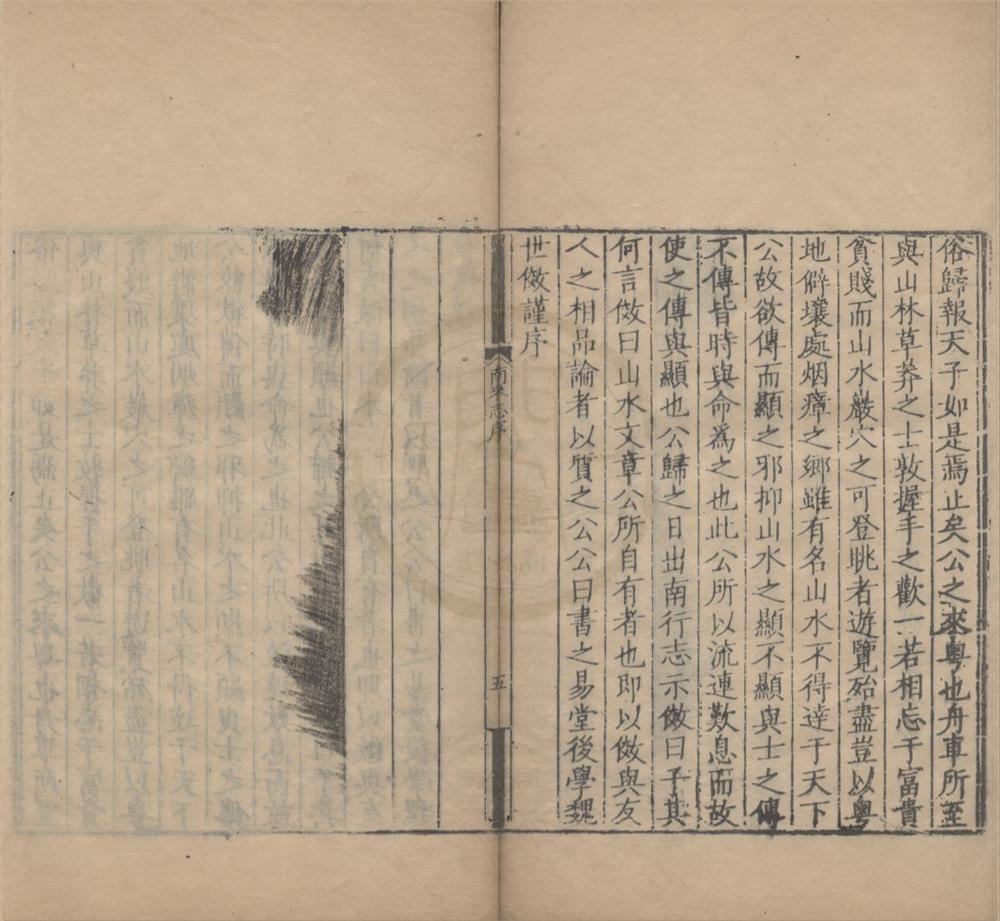 俗歸報天子如是焉止矣公之來粵也舟車所至
與山林草莽之士敦握手之歡一若相忘于富貴
貧賤而山水巖穴之可登眺者遊覽殆盡豈以粵
地僻壤處烟瘴之鄉雖有名山水不得達于天下
公故欲傳而顯之邪抑山水之顯不顯與士之傳
不傳皆時與命為之也此公所以流連歎息而故
使之傳與顯也公歸之日出南行志示傚曰子其
何言傚曰山水文章公所自有者也即以傚與友
人之相品論者以質之公公曰書之易堂後學魏
世傚謹序
南來志序
五